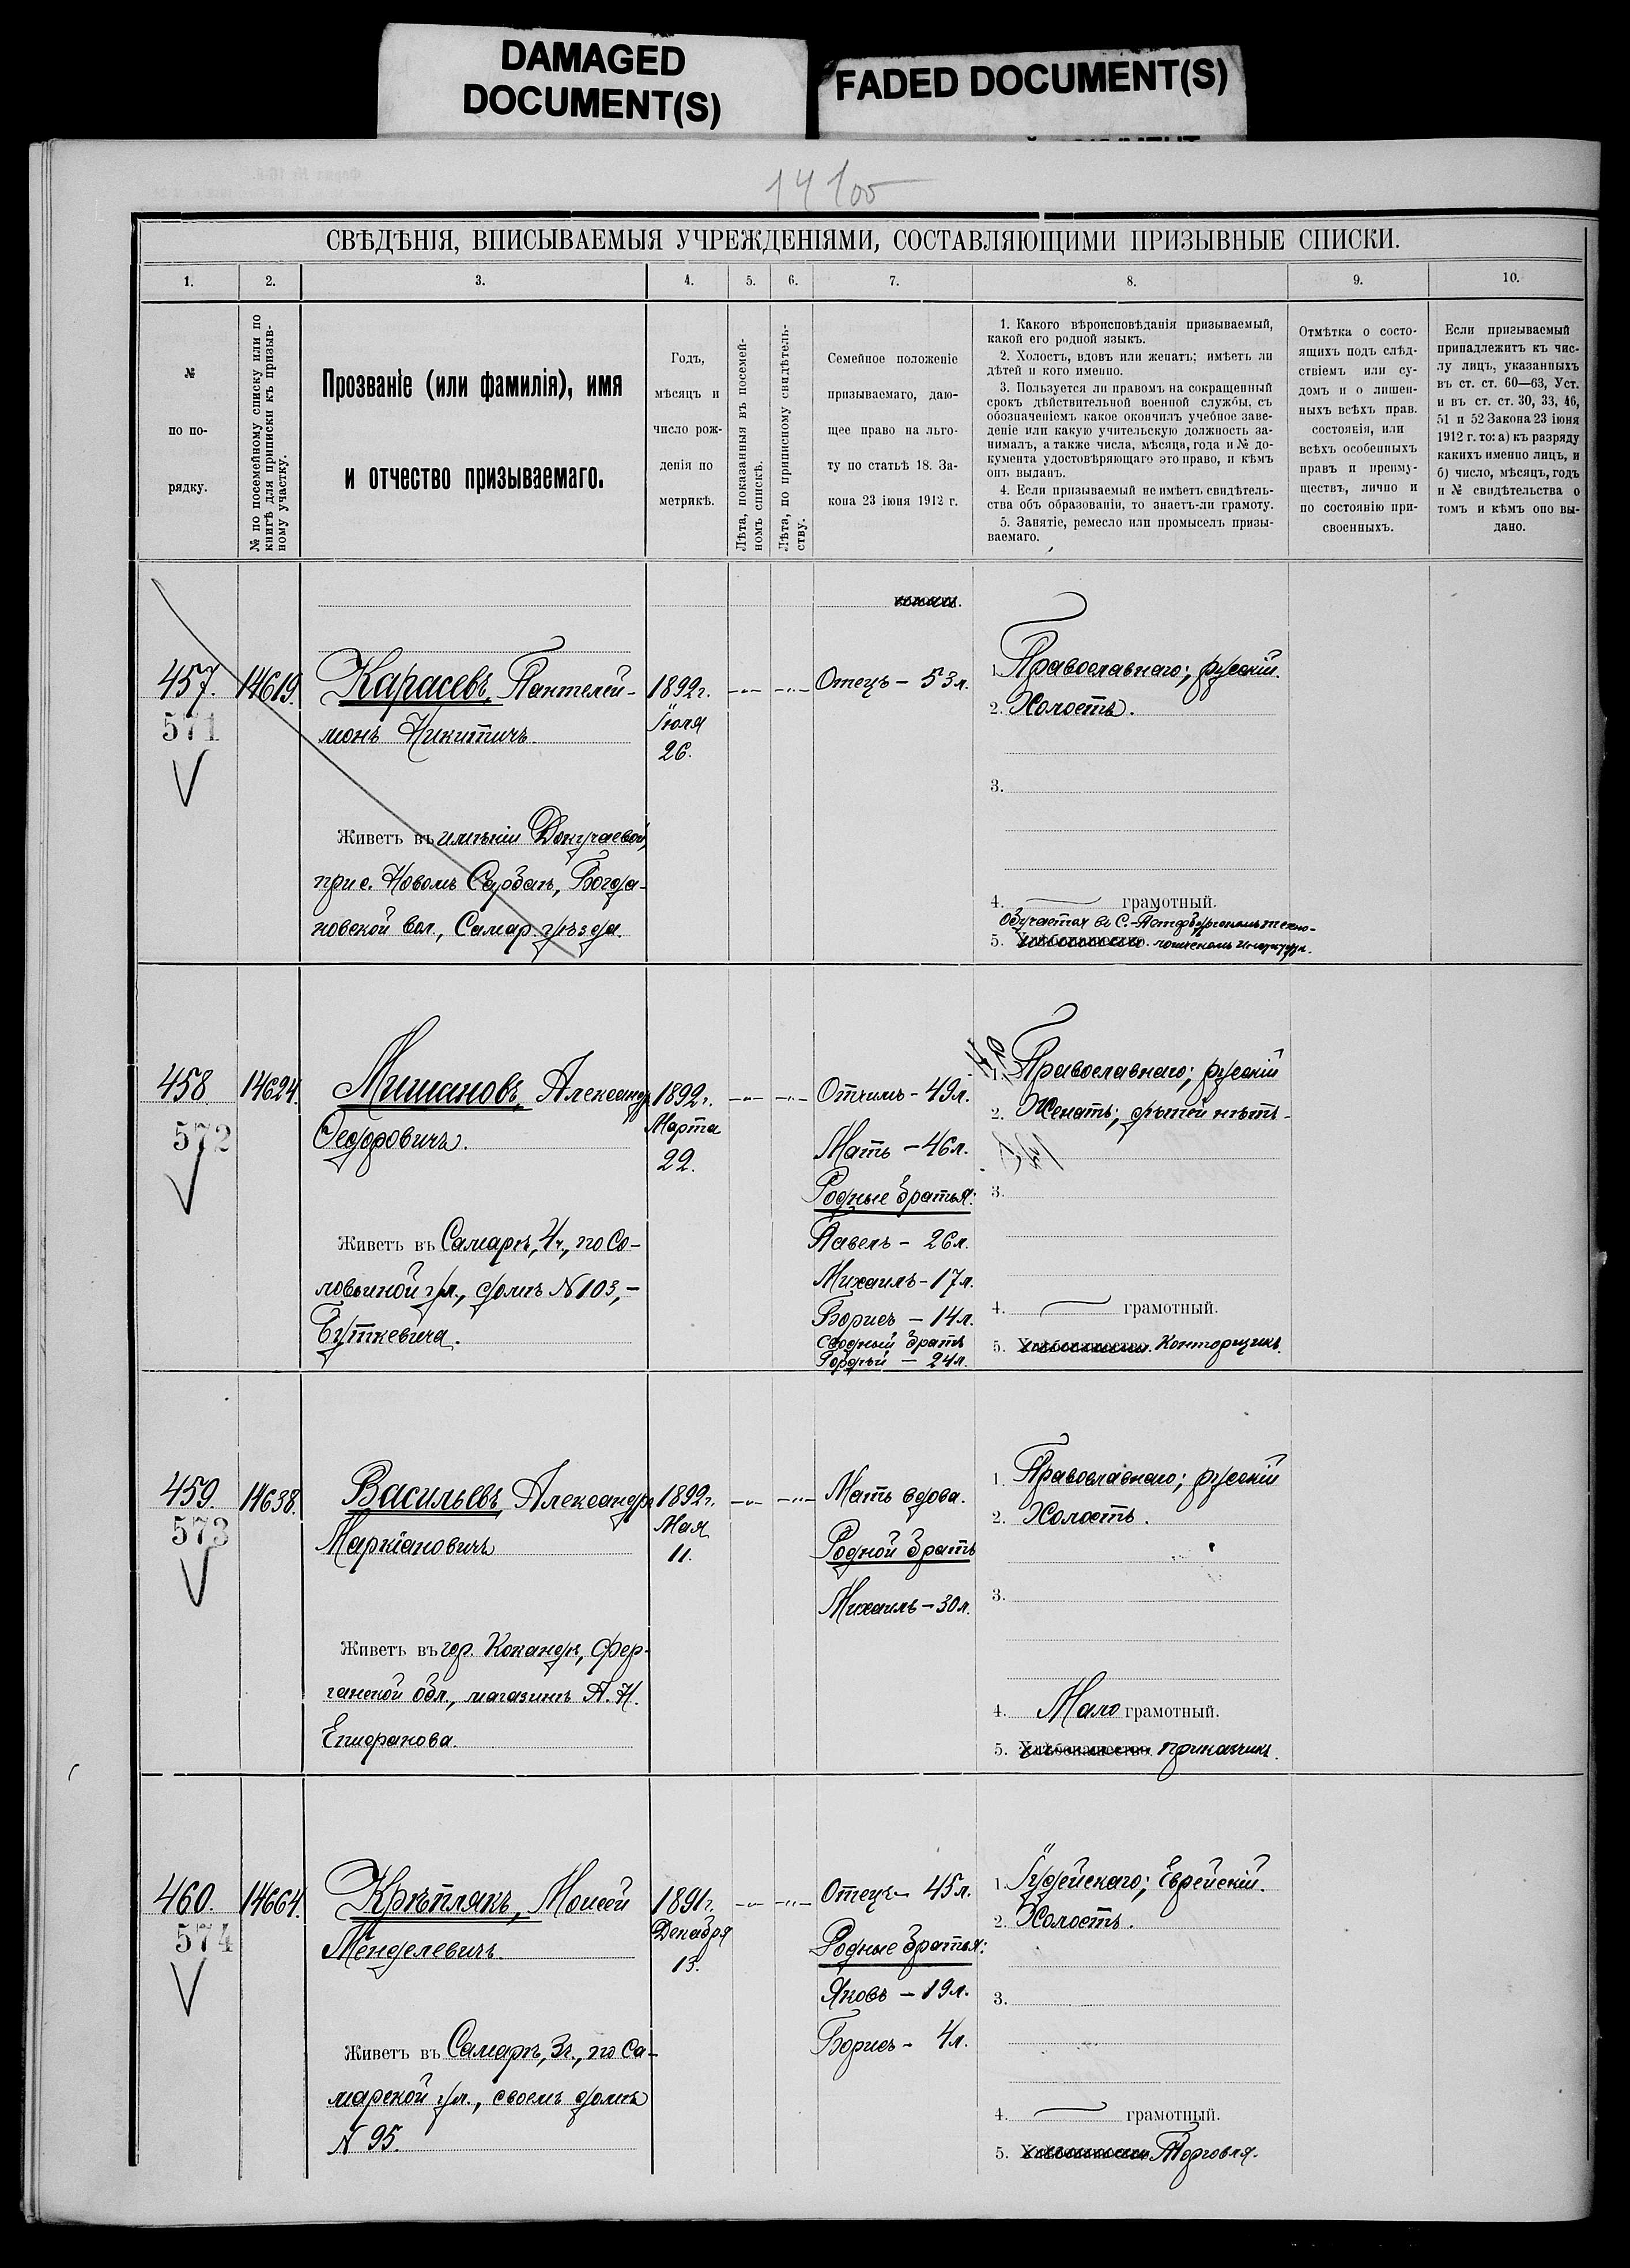 DAMAGED
DOCUMENT(S)
FADED DOCUMENT(S)
14 100
СВѢДѢНІЯ, ВПИСЫВАЕМЫЯ УЧРЕЖДЕНІЯМИ, СОСТАВЛЯЮЩИМИ ПРИЗЫВНЫЕ СПИСКИ.
1. 2. 3. 4. 5. 6. 7. 8. 9. 10.
№
по по-
рядку.
№ по посемейному списку или по
книгѣ для приписки къ призыв-
ному участку.
Прозваніе (или фамилія), имя
и отчество призываемаго.
Годъ,
мѣсяцъ и
число рож-
денія по
метрикѣ.
Лѣта, показанныя въ посемей-
номъ спискѣ.
Лѣта, по приписному свидѣтель-
ству.
Семейное положеніе
призываемаго, даю-
щее право на льго-
ту по статьѣ 18. За-
кона 23 іюня 1912 г.
1. Какого вѣроисповѣданія призываемый,
какой его родной языкъ.
2. Холостъ, вдовъ или женатъ; имѣетъ ли
дѣтей и кого именно.
3. Пользуется ли правомъ на сокращенный
срокъ дѣйствительной военной службы, съ
обозначеніемъ какое окончилъ учебное заве-
деніе или какую учительскую должность за-
нималъ, а также числа, мѣсяца, года и № до-
кумента удостовѣряющаго это право, и кѣмъ
онъ выданъ.
4. Если призываемый не имѣетъ свидѣтель-
ства объ образованіи, то знаетъ-ли грамоту.
5. Занятіе, ремесло или промыселъ призы-
ваемаго.
Отмѣтка о состо-
ящихъ подъ слѣд-
ствіемъ или су-
домъ и о лишен-
ныхъ всѣхъ прав.
состоянія, или
всѣхъ особенныхъ
правъ и преиму-
ществъ, лично и
по состоянію при-
своенныхъ.
Если призываемый
принадлежитъ къ чис-
лу лицъ, указанныхъ
въ ст. ст. 60—63, Уст.
и въ ст. ст. 30, 33, 46,
51 и 52 Закона 23 іюня
1912 г. то: а) къ разряду
какихъ именно лицъ, и
б) число, мѣсяцъ, годъ
и № свидѣтельства о
томъ и кѣмъ оно вы-
дано.
457.
571
14619.
Карасевъ, Пантелей-
монъ Никитичъ.
Живетъ въ имѣніи Докучаевой,
при с. Новомъ Сарбаѣ, Богда-
новской вол., Самар. уѣзда.
1892 г.
Іюля
26.
Отецъ – 53 л.
1. Православнаго; русскій.
2. Холостъ.
3.
4. грамотный.
Обучается въ С.-Петербургскомъ техно-
5. Хлѣбопашество. логическомъ институтѣ.
458.
572
14624.
Мишановъ, Александр
Ѳедоровичъ.
Живетъ въ Самарѣ, 4 ч., по Со-
ловьиной ул., домъ № 103, –
Буткевича.
1892 г.
Марта
22.
Отчимъ – 49 л.
Мать – 46 л.
Родные братья:
Павелъ – 26 л.
Михаилъ – 17 л.
Борисъ – 14 л.
Сводный братъ
Гордѣй – 24 л.
1. Православнаго; русскій
2. Женатъ; дѣтей нѣтъ.
3.
4. грамотный.
5. Хлѣбопашество. Конторщикъ.
459.
573
14638.
Васильевъ, Александръ
Маркіановичъ
Живетъ въ гор. Кокандѣ, Фер-
ганской обл., магазинъ А. Н.
Епифанова.
1892 г.
Мая
11.
Мать вдова.
Родной братъ
Михаилъ – 30 л.
1. Православнаго; русскій
2. Холостъ.
3.
4. Мало грамотный.
5. Хлѣбопашество. приказчикъ.
460.
574
14664.
Крѣплякъ, Моисей
Менделевичъ
Живетъ въ Самарѣ, 3 ч., по Са-
марской ул., своемъ домѣ
№ 95.
1891 г.
Декабря
13.
Отецъ – 45 л.
Родные братья:
Яковъ – 19 л.
Борисъ – 4 л.
1. Іудейскаго; Еврейскій.
2. Холостъ.
3.
4. грамотный.
5. Хлѣбопашество. Торговля.